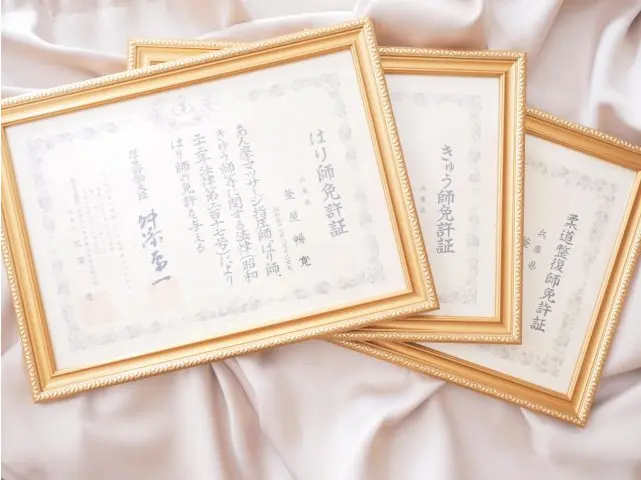 はり師免許証
兵庫県
釜尾暢寛
あん摩マツサージ指圧師、はり師、
きゆう師等に関する法律(昭和
二十二年法律第二百十七号)により
はり師の免許を与える
厚生労働大臣
舛添要一
きゅう師免許証
兵庫県
柔道整復師免許証
兵庫県